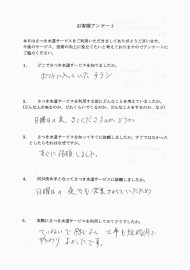 お客様アンケート
本日はさつき水道サービスをご利用いただきましてありがとうございます。
今後のサービス、技術の向上に役立てたいと考えておりますのでアンケートに
ご協力ください。
1. どこでさつき水道サービスを知りましたか。
ポストに入っていた チラシ
2. さつき水道サービスを利用する前にどんなことを考えていましたか。
日曜日の夜 きてくださるのか どうか
3. さつき水道サービスを知ってすぐに依頼しましたか。すぐではなかった
としたらそれはなぜですか。
すぐに依頼しました。
4. 何が決め手となってさつき水道サービスに依頼しましたか。
日曜日の夜でも営業されていたため
5. 実際にさつき水道サービスを利用してみてどうでしたか。
ていねいで 感じよく 工事も短時間で
終わり よかったです。